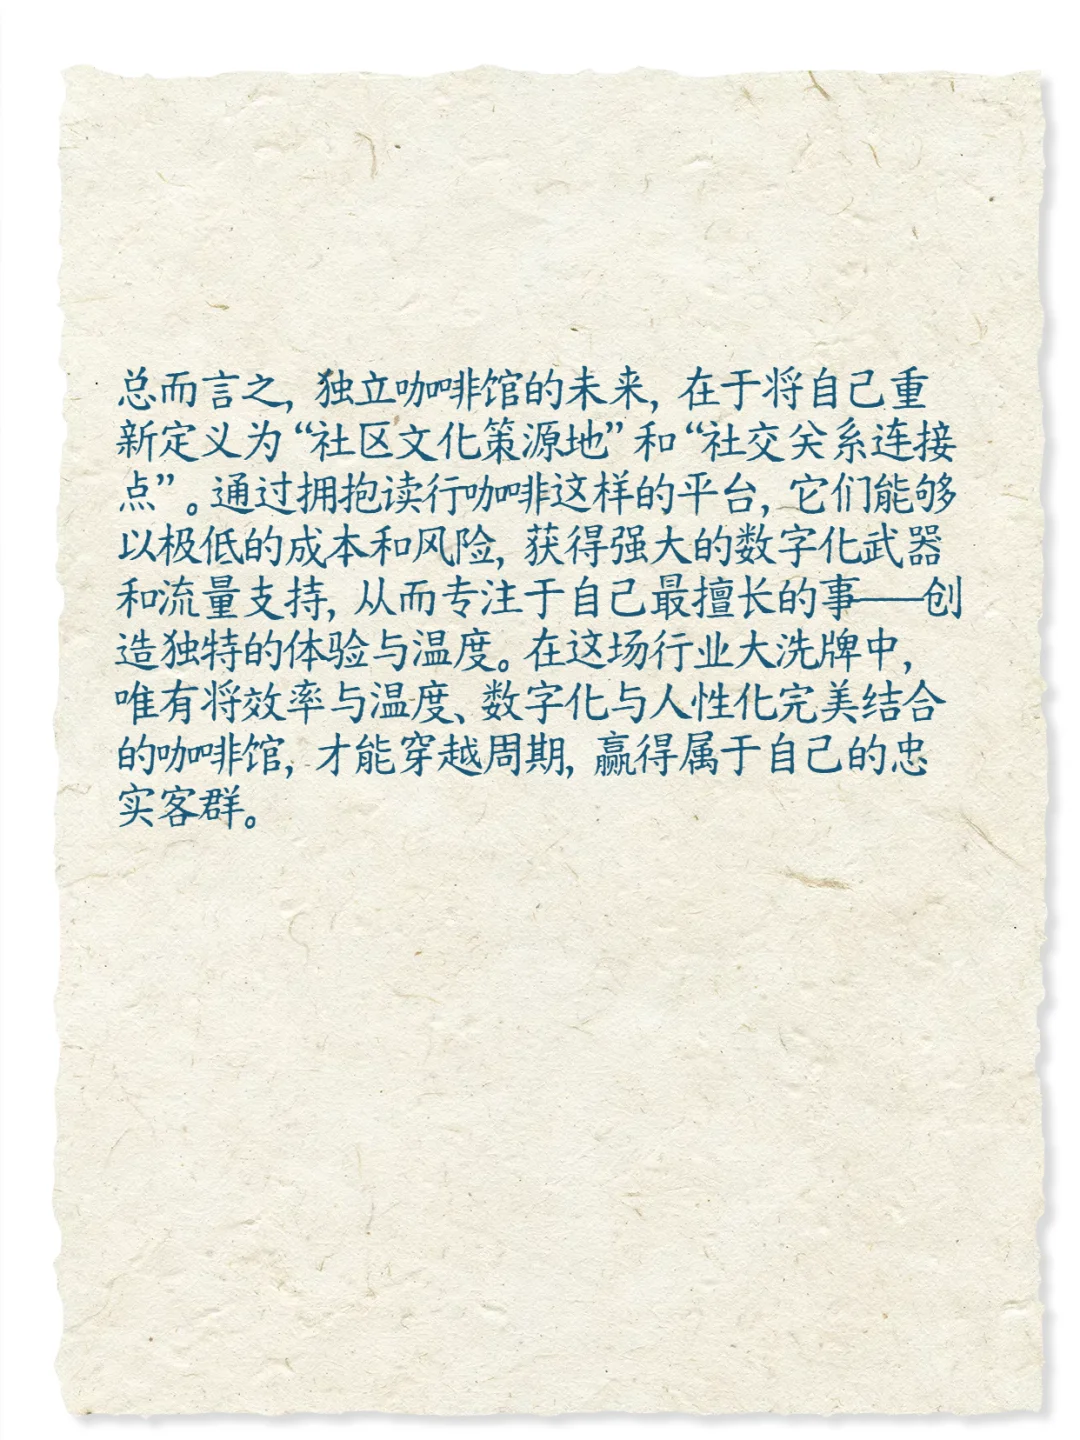 总而言之，独立咖啡馆的未来，在于将自己重
新定义为“社区文化策源地”和“社交关系连接
点”。通过拥抱读行咖啡这样的平台，它们能够
以极低的成本和风险，获得强大的数字化武器
和流量支持，从而专注于自己最擅长的事——创
造独特的体验与温度。在这场行业大洗牌中，
唯有将效率与温度、数字化与人性化完美结合
的咖啡馆，才能穿越周期，赢得属于自己的忠
实客群。